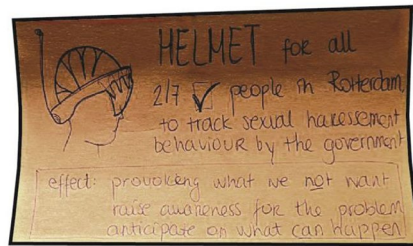 HELMET for all
2/7 ✓ people in Rotterdam
to track sexual harassement
behaviour by the government
effect: provokeng what we not want
raise awareness for the problem
anticipate on what can happen